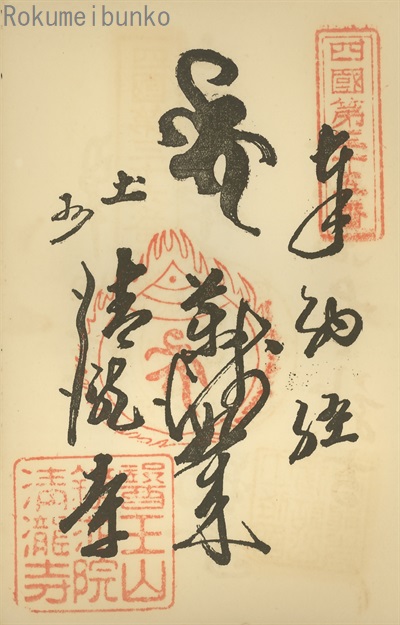 Rokumeibunko
四國第三十五番
奉納経
薬師如来
土州
清瀧寺
醫王山
鏡池院
清瀧寺